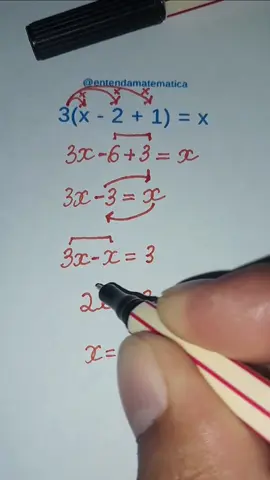 @entendamatematica
3(x - 2 + 1) = x
3x - 6 + 3 = x
3x - 3 = x
3x - x = 3
x =